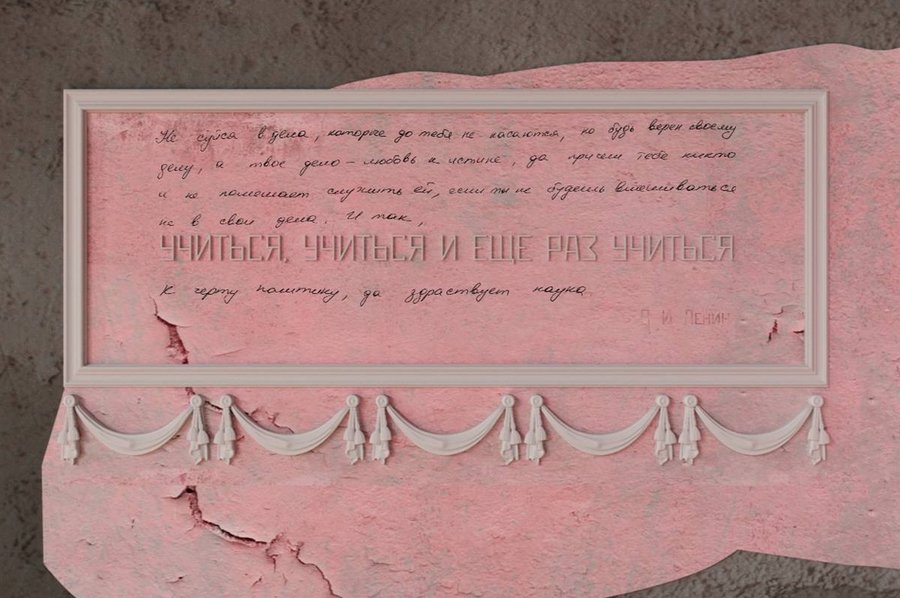 Не суйся в дела, которые до тебя не касаются, но будь верен своему
делу, а твое дело – любовь к истине, да причем тебе никто
и не помешает служить ей, если ты не будешь вмешиваться
не в свои дела. И так,
УЧИТЬСЯ, УЧИТЬСЯ И ЕЩЕ РАЗ УЧИТЬСЯ
К черту политику, да здраствует наука
И ЛЕНИН